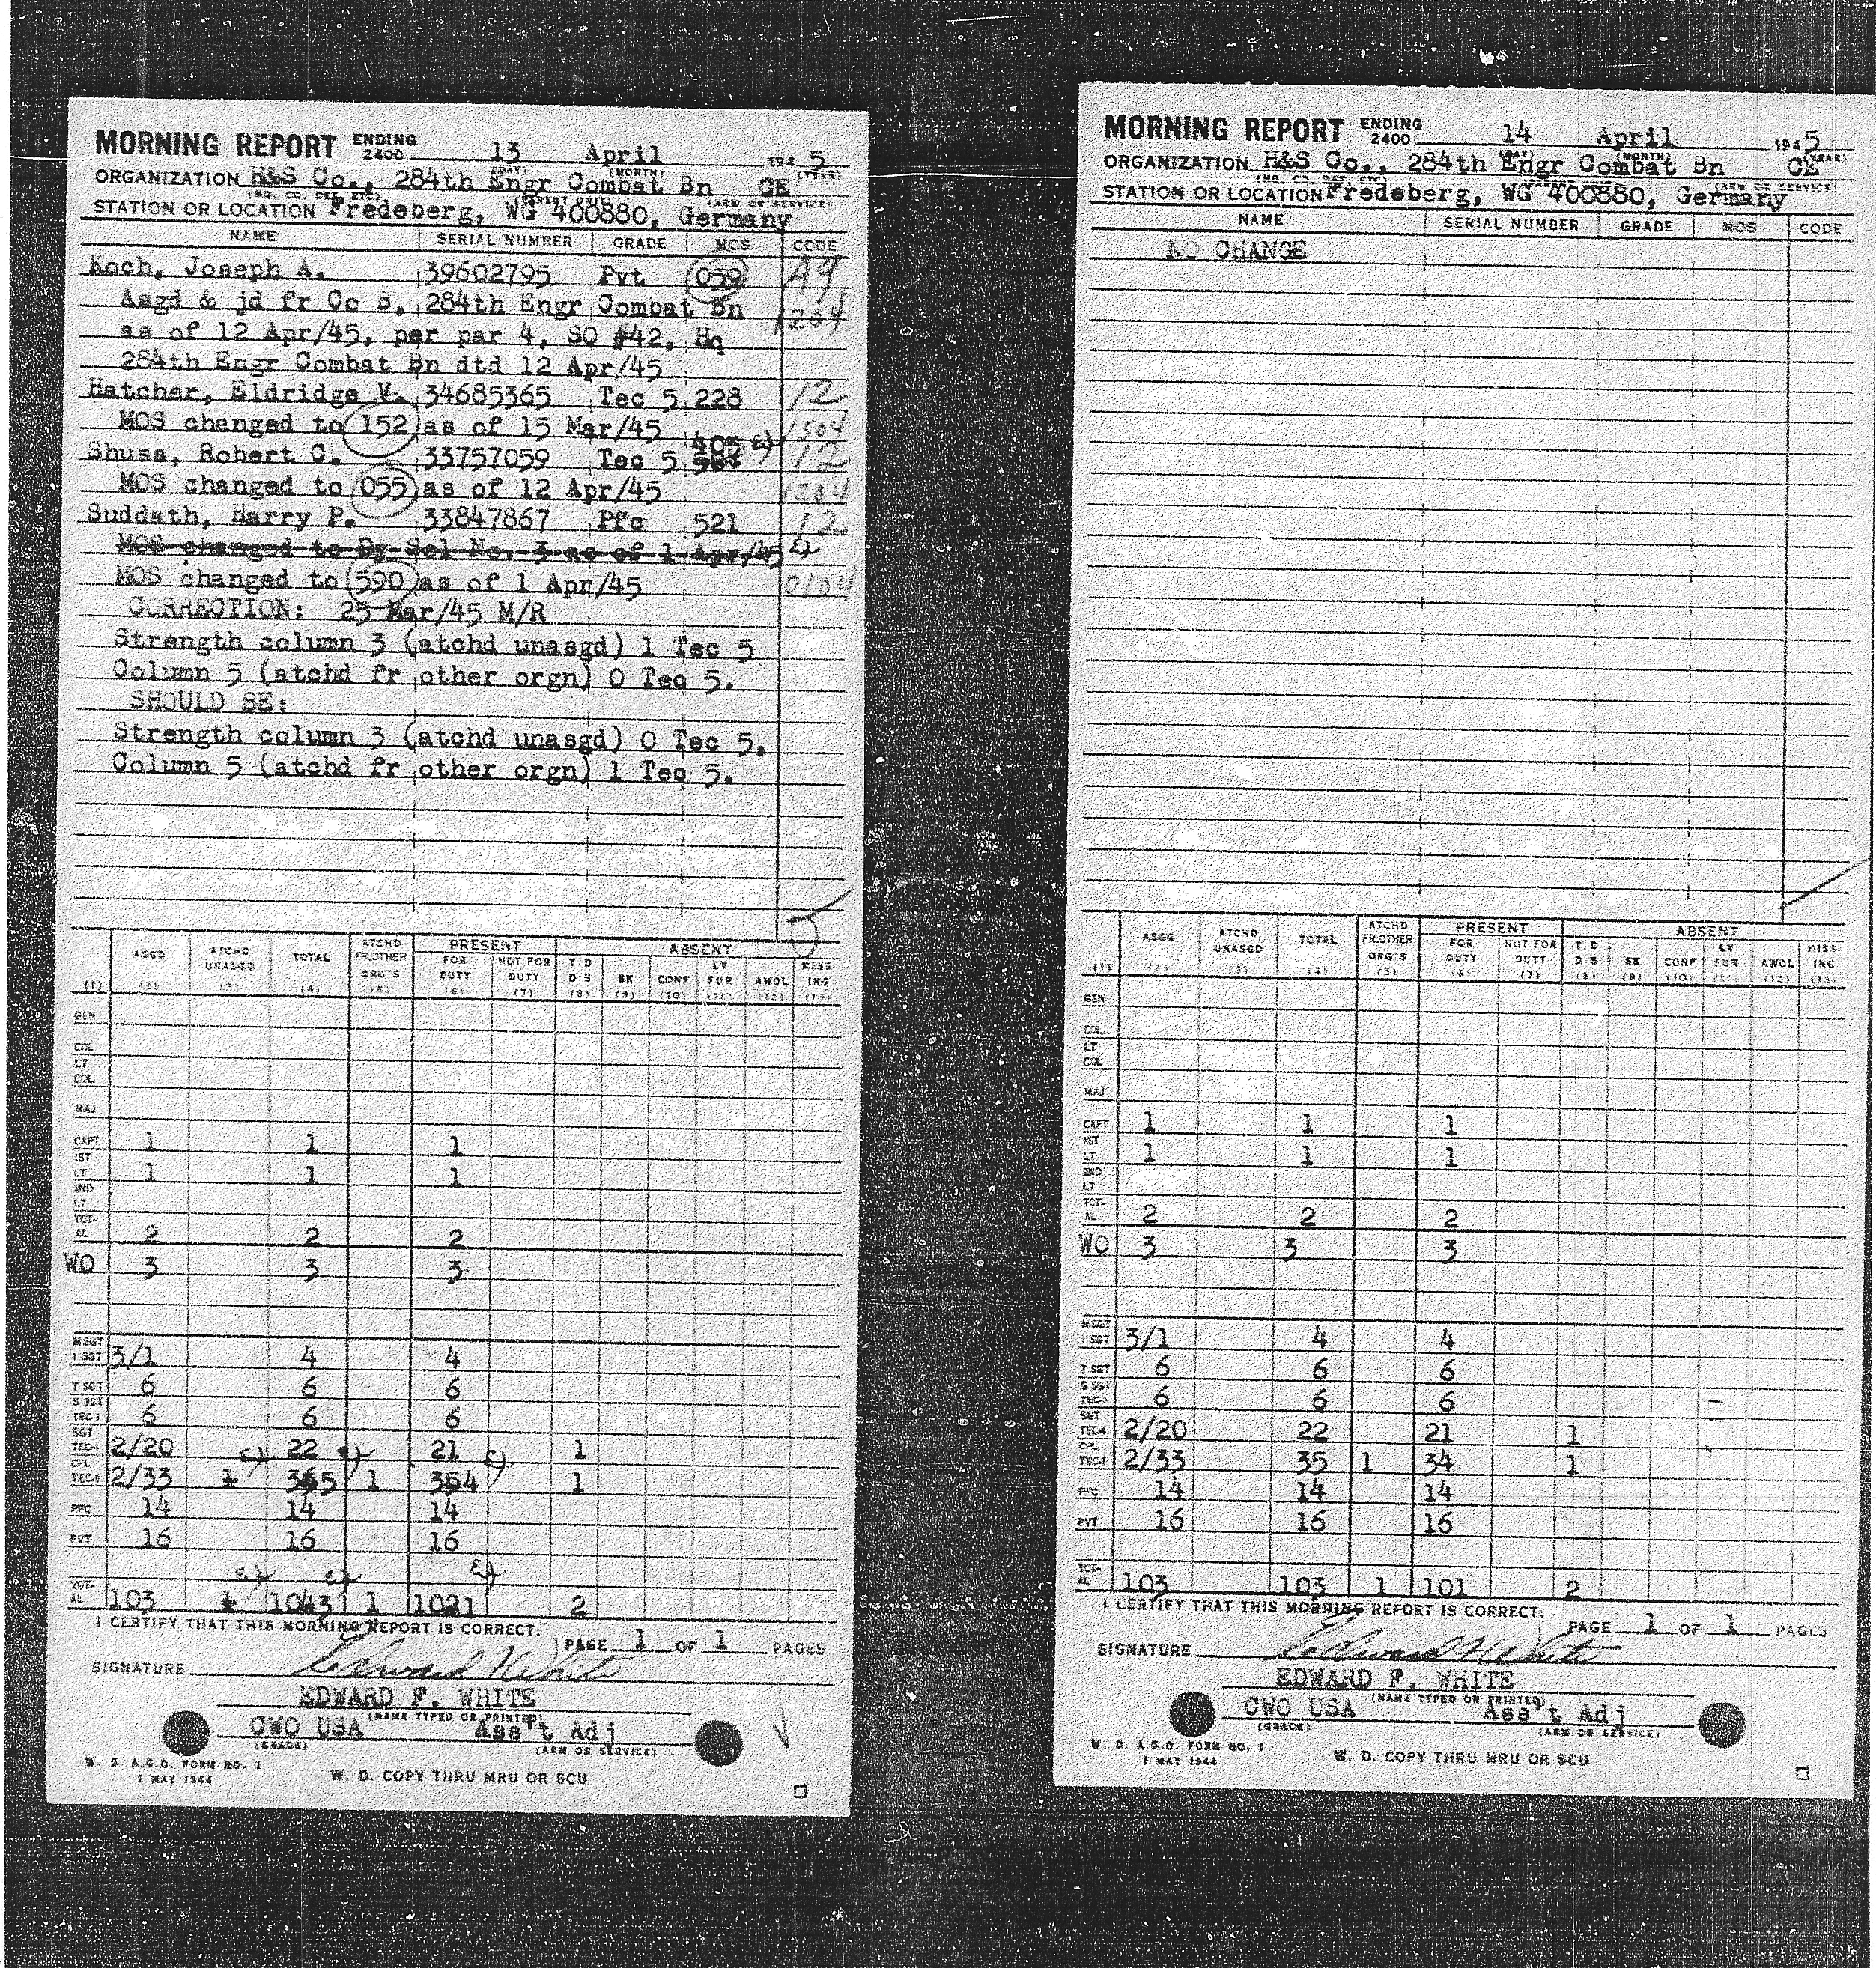 MORNING REPORT ENDING 2400 13 April 1945
(DAY) (MONTH) (YEAR)
ORGANIZATION H&S Co., 284th Engr Combat Bn CE
(HQ. CO. DET. ETC.) (PARENT UNIT) (ARM OR SERVICE)
STATION OR LOCATION Fredeberg, WG 400880, Germany
NAME SERIAL NUMBER GRADE MOS CODE
Koch, Joseph A. 39602795 Pvt 059 A9
Asgd & jd fr Co B, 284th Engr Combat Bn 1204
as of 12 Apr/45, per par 4, SO #42, Hq
284th Engr Combat Bn dtd 12 Apr/45
Hatcher, Eldridge V. 34685365 Tec 5 228 12
MOS changed to 152 as of 15 Mar/45 1504
Shuss, Robert C. 33757059 Tec 5 405 12
MOS changed to 055 as of 12 Apr/45 1204
Suddath, Harry P. 33847867 Pfc 521 12
MOS changed to By Sel No. 3 as of 1 Apr/45
MOS changed to 590 as of 1 Apr/45 0104
CORRECTION: 25 Mar/45 M/R
Strength column 3 (atchd unasgd) 1 Tec 5
Column 5 (atchd fr other orgn) 0 Tec 5.
SHOULD BE:
Strength column 3 (atchd unasgd) 0 Tec 5,
Column 5 (atchd fr other orgn) 1 Tec 5.
ASGD ATCHD UNASGD TOTAL ATCHD FR.OTHER ORG'S PRESENT FOR DUTY NOT FOR DUTY ABSENT T D D S SK CONF LV FUR AWOL MISSING
(1) (2) (3) (4) (5) (6) (7) (8) (9) (10) (11) (12) (13)
GEN
COL
LT COL
MAJ
CAPT 1 1 1
1ST LT 1 1 1
2ND LT
TOTAL 2 2 2
WO 3 3 3
M SGT 1 SGT 3/1 4 4
T SGT 6 6 6
S SGT TEC-3 6 6 6
SGT TEC-4 2/20 22 21 1
CPL TEC-5 2/33 1 35 1 34 1
PFC 14 14 14
PVT 16 16 16
TOTAL 103 1 103 1 101 2
I CERTIFY THAT THIS MORNING REPORT IS CORRECT:
PAGE 1 OF 1 PAGES
SIGNATURE Edward F White
EDWARD F. WHITE
(NAME TYPED OR PRINTED)
CWO USA Ass't Adj
(GRADE) (ARM OR SERVICE)
W. D. A.G.O. FORM NO. 1
1 MAY 1944
W. D. COPY THRU MRU OR SCU
MORNING REPORT ENDING 2400 14 April 1945
(DAY) (MONTH) (YEAR)
ORGANIZATION H&S Co., 284th Engr Combat Bn CE
(HQ. CO. DET. ETC.) (PARENT UNIT) (ARM OR SERVICE)
STATION OR LOCATION Fredeberg, WG 400880, Germany
NAME SERIAL NUMBER GRADE MOS CODE
NO CHANGE
ASGD ATCHD UNASGD TOTAL ATCHD FR.OTHER ORG'S PRESENT FOR DUTY NOT FOR DUTY ABSENT T D D S SK CONF LV FUR AWOL MISSING
(1) (2) (3) (4) (5) (6) (7) (8) (9) (10) (11) (12) (13)
GEN
COL
LT COL
MAJ
CAPT 1 1 1
1ST LT 1 1 1
2ND LT
TOTAL 2 2 2
WO 3 3 3
M SGT 1 SGT 3/1 4 4
T SGT 6 6 6
S SGT TEC-3 6 6 6
SGT TEC-4 2/20 22 21 1
CPL TEC-5 2/33 35 1 34 1
PFC 14 14 14
PVT 16 16 16
TOTAL 103 103 1 101 2
I CERTIFY THAT THIS MORNING REPORT IS CORRECT:
PAGE 1 OF 1 PAGES
SIGNATURE Edward F White
EDWARD F. WHITE
(NAME TYPED OR PRINTED)
CWO USA Ass't Adj
(GRADE) (ARM OR SERVICE)
W. D. A.G.O. FORM NO. 1
1 MAY 1944
W. D. COPY THRU MRU OR SCU